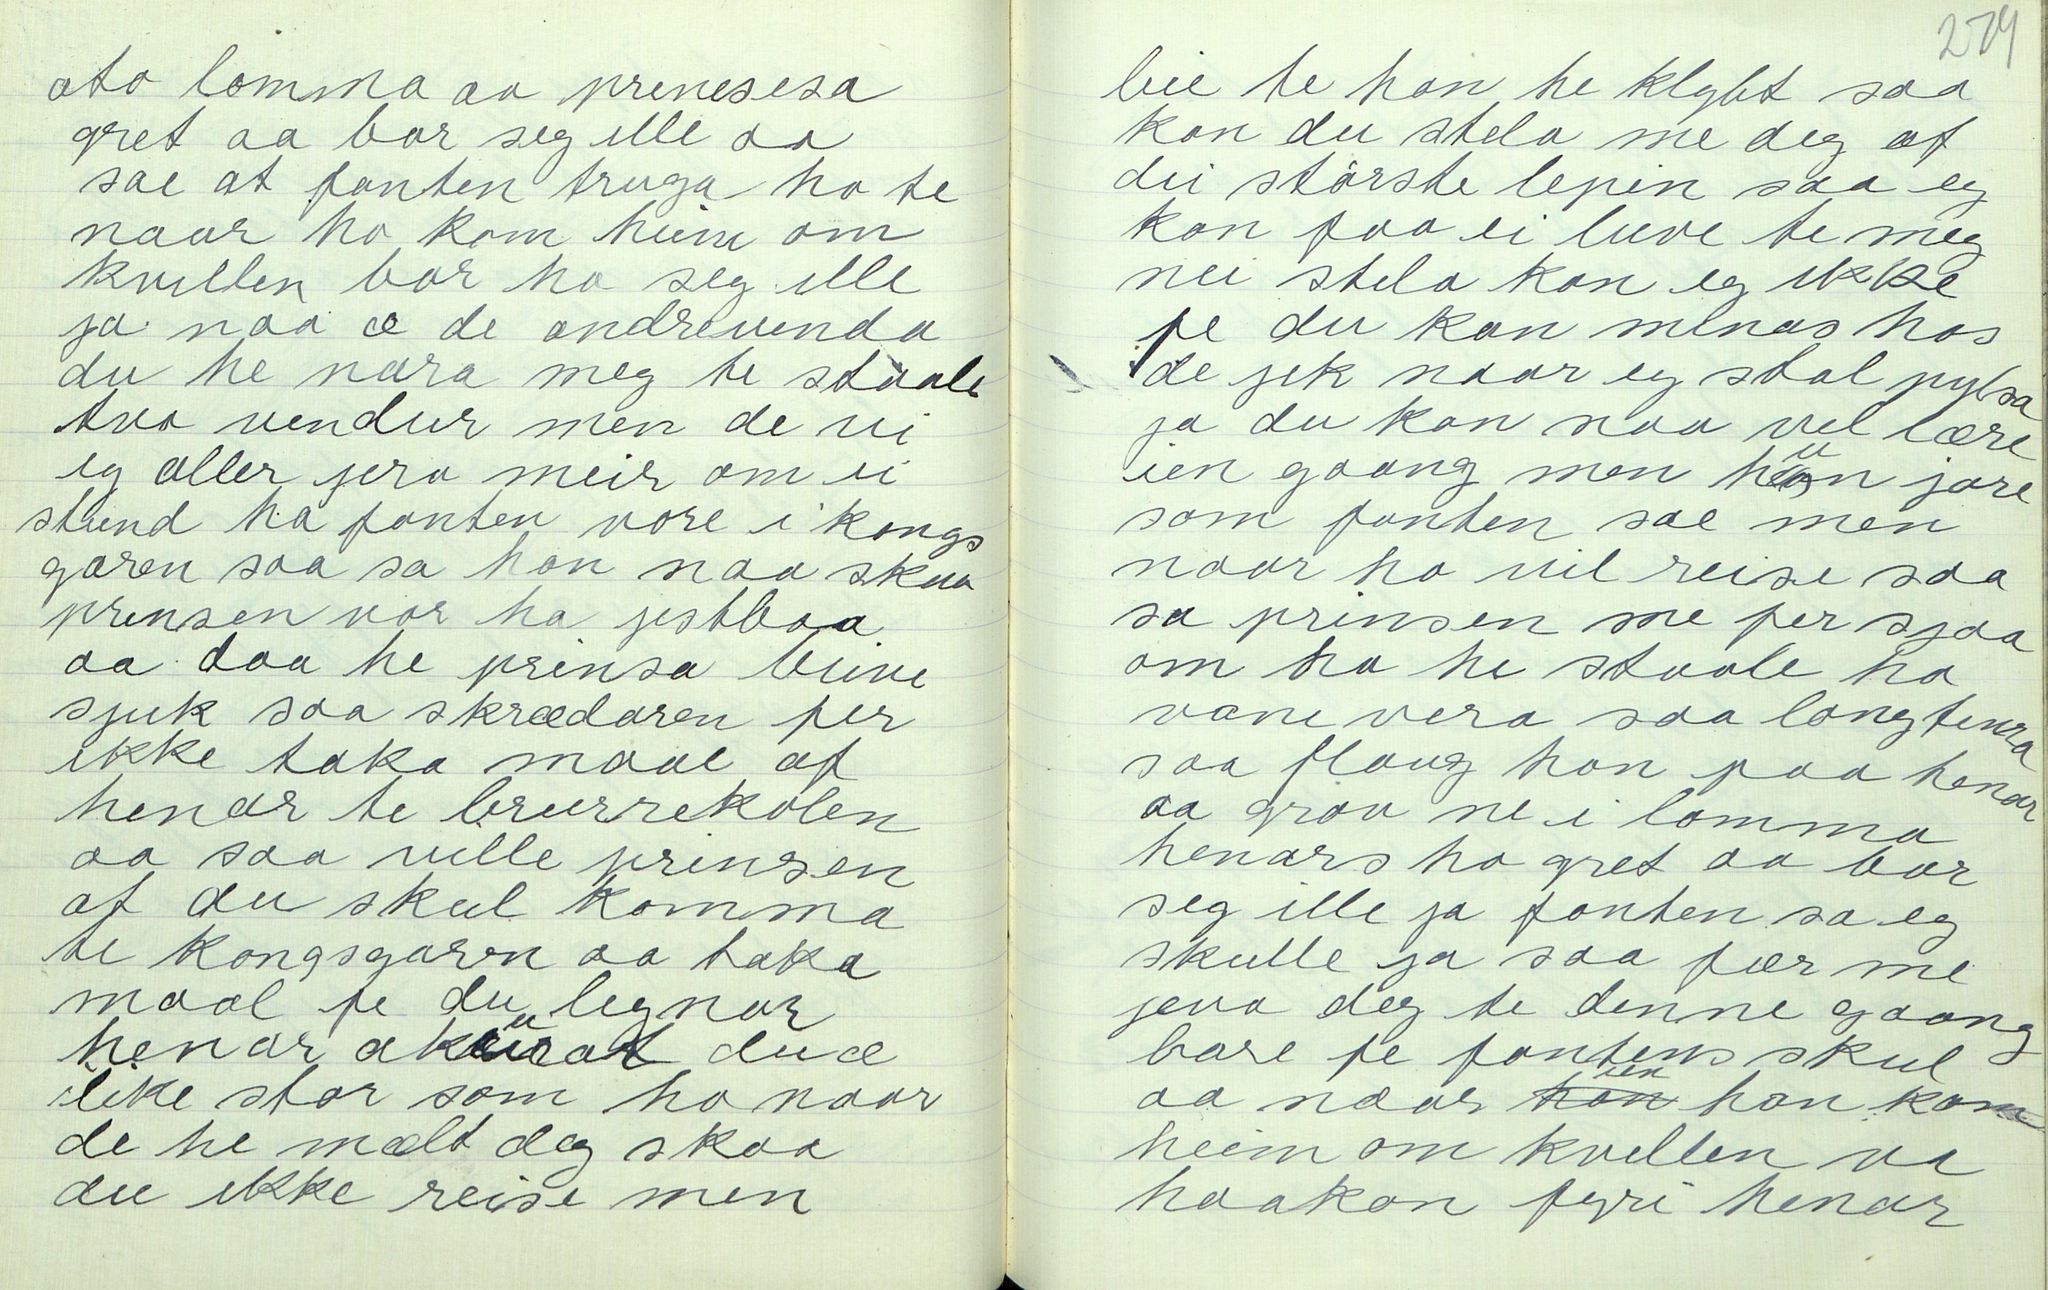 ato lomma aa prinsesa
gret aa bar seg ille aa
sae at fanten truga ho te
naar ho kom heim om
kvellen bar ho seg ille
ja naa æ de andrevenda
du he nara meg te staale
tvo vendur men de vi
eg aller jera meir om ei
stund ha fanten vore i kongs
garen saa sa han naa skaa
prinsen vor ha jestboa
aa daa he prinsa bleive
sjuk saa skrædaren fer
ikke taka maal af
henar te brurrekolen
aa saa ville prinsen
at du skul komma
te kongsgaren aa taka
maal fe du lignar
henar akurat du æ
like stor som ho naar
de he mælt deg skaa
du ikke reise men
274
bie te han he klybt saa
kan du stela me deg af
dei störste lepin saa eg
kan faa ei luve te meg
nei stela kan eg ikke
fe du kan minas hos
de jek naar eg stal pylsa
ja du kan naa vel lære
ien gaang men hun jore
som fanten sae men
naar ho vil reise saa
sa prinsen me fer sjaa
om ho he staale ho
vane vera saa langfinra
saa flaug han paa henar
aa grov ne i lomma
henars ho gret aa bar
seg ille ja fanten sa eg
skulle ja saa fær me
jeva deg te denne gaang
bare fe fantens skul
aa naar han kom
heim om kvellen va
haakon fyri henar